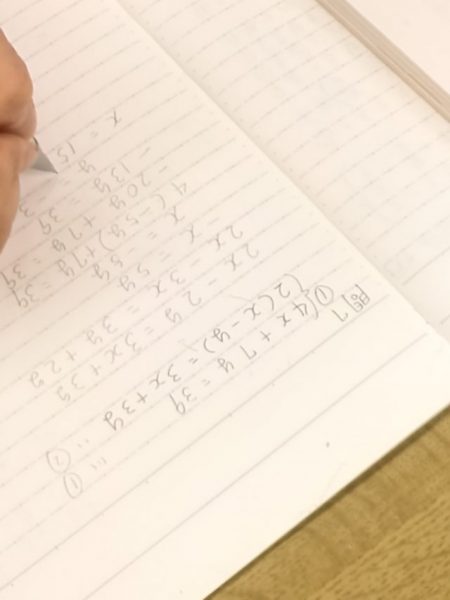 問7
① 4x + 7y = 39 … ①
2(x - y) = 3x + 3y … ②
2x - 2y = 3x + 3y
2x - 3x = 3y + 2y
- x = 5y
x = - 5y
4(-5y) + 7y = 39
- 20y + 7y = 39
- 13y = 39
y = - 3
x = 15